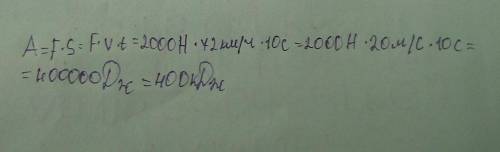 A=F·S=F·V·t=2000Н·72км/ч·10с=2000Н·20м/с·10с=
=400000Дж=400кДж